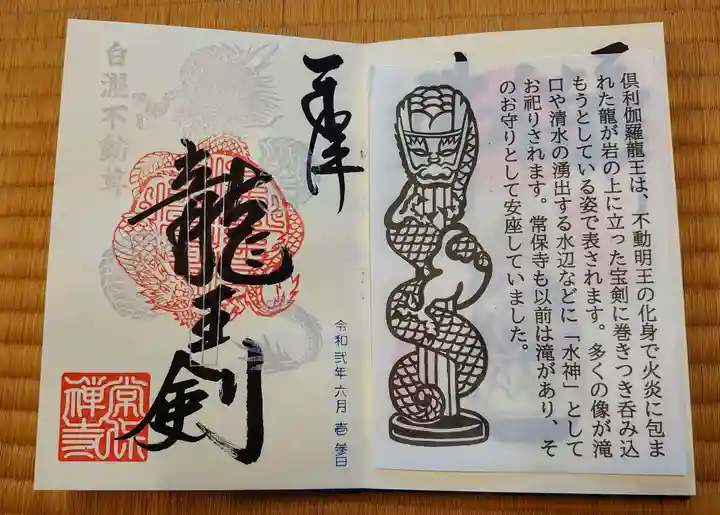 奉拝
龍王剣
白瀧不動尊
令和弐年六月壱参日
常保
禅寺
倶利伽羅龍王は、不動明王の化身で火炎に包ま
れた龍が岩の上に立った宝剣に巻きつき呑み込
もうとしている姿で表されます。多くの像が滝
口や清水の湧出する水辺などに「水神」として
お祀りされます。常保寺も以前は滝があり、そ
のお守りとして安座していました。